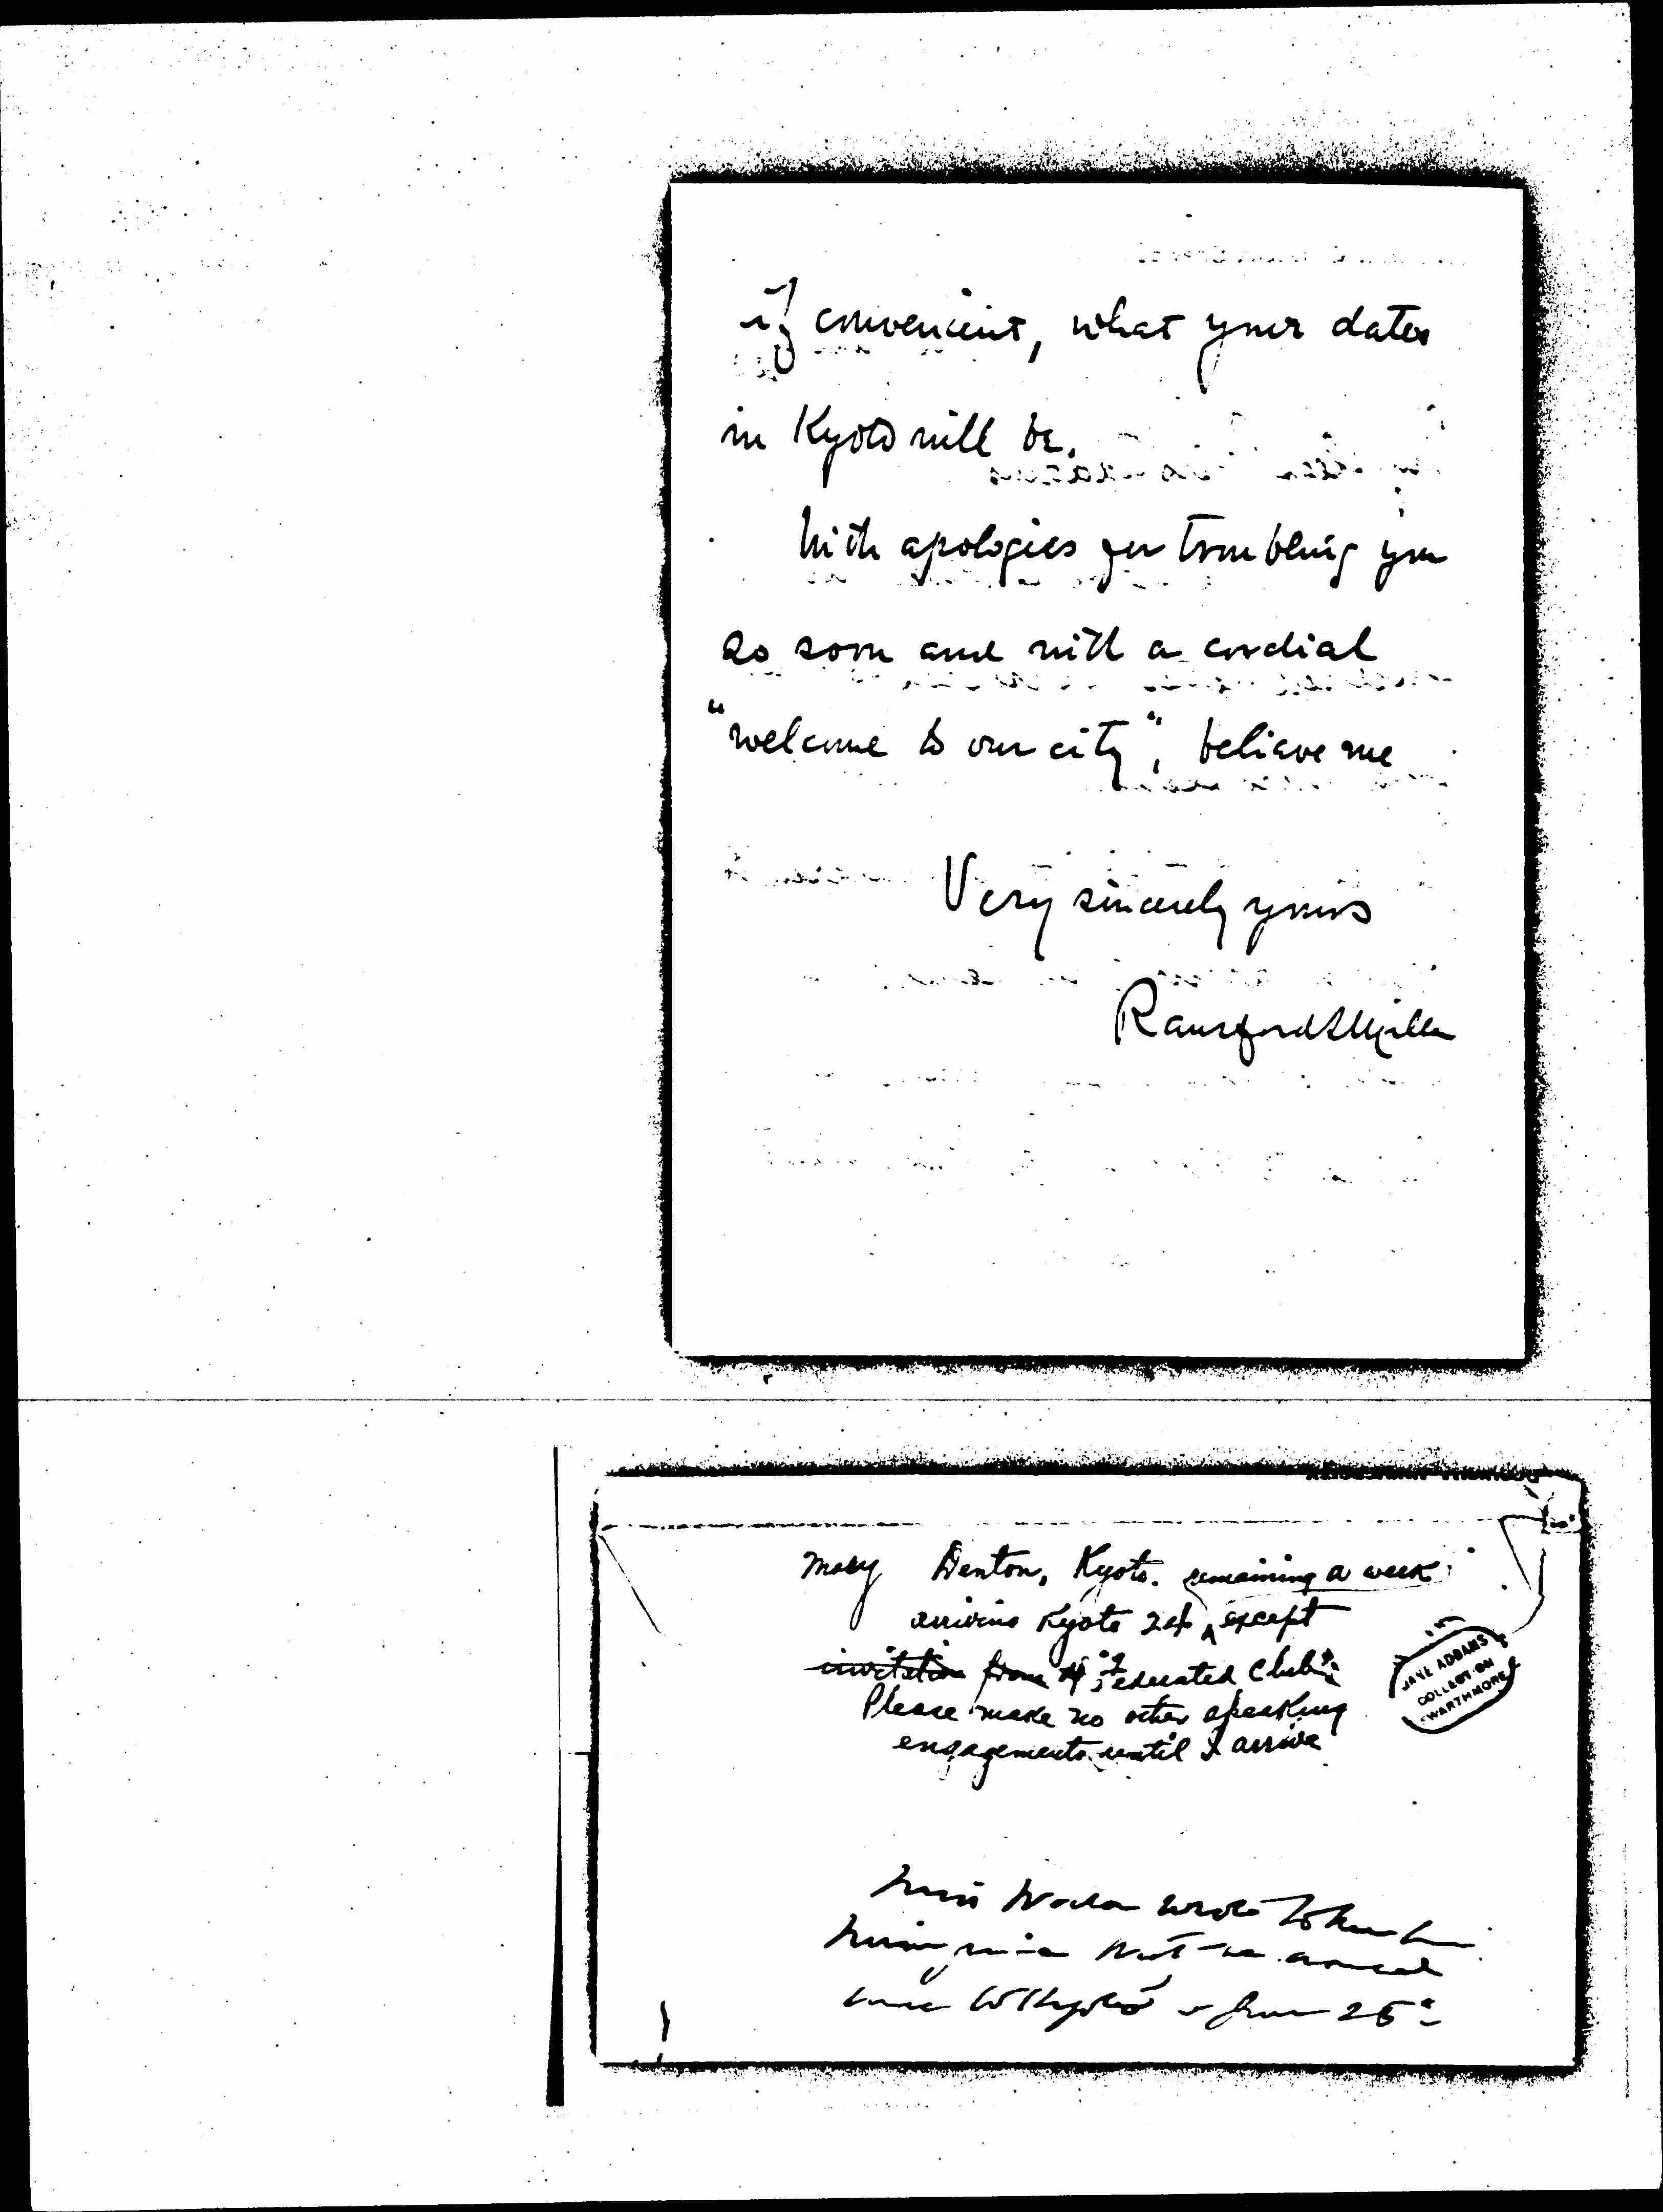 if convenient, what your dates
in Kyoto will be.
With apologies for troubling you
so soon and with a cordial
"welcome to our city", believe me
Very sincerely yours
Ransford S Miller
Mary Denton, Kyoto. remaining a week
arriving Kyoto 24 ^ except
invitation from Federated Clubs
Please make no other speaking
engagements until I arrive
JANE ADDAMS
COLLECTION
SWARTHMORE
Miss wrote
to Kyoto June 25